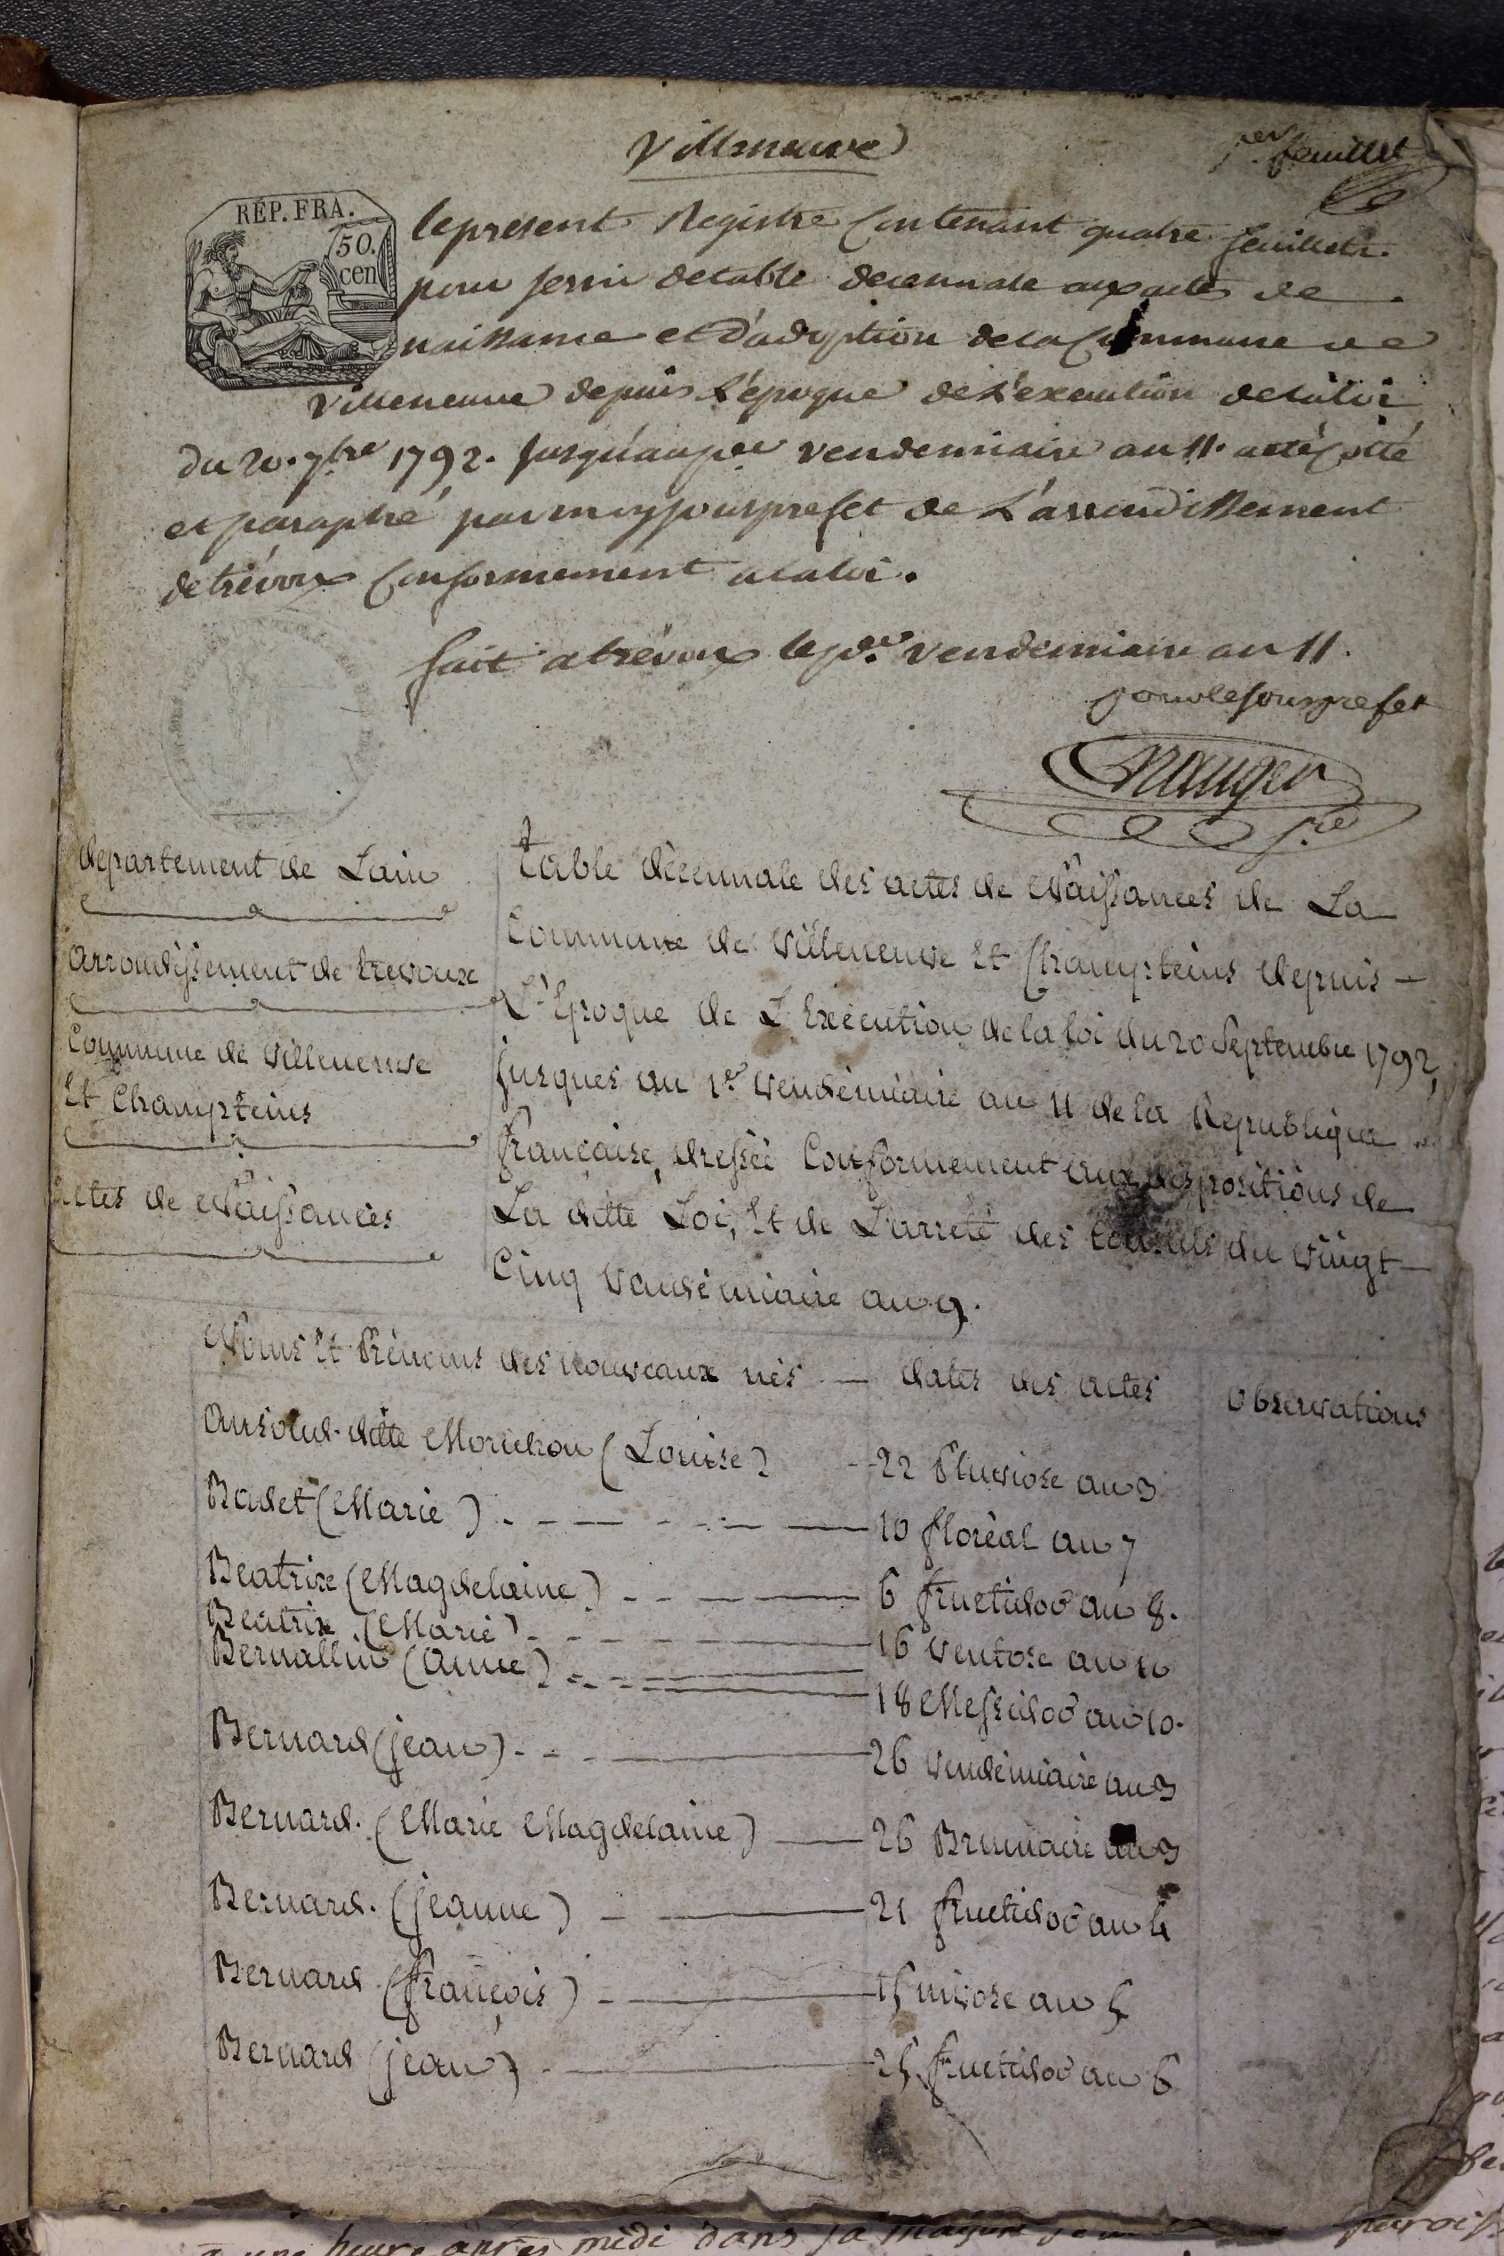 Villeneuve
1er feuillet
RÉP. FRA.
50.
cen
le present Registre Contenant quatre feuillets.
pour servir de table decennale aux actes de
naissance et d'adoption de la Commune de
Villeneuve depuis L'époque de L'execution de la loi
du 20. 7bre 1792. jusqu'au per vendemiaire an 11. a eté Cotté
et paraphé par moy sousprefet de L'arrondissement
de trévoux Conformement a la loi.
fait a trévoux le per vendemiaire an 11.
pour le sousprefet
departement de Lain
arrondissement de trevoux
Commune de Villeneuve
Et Champteins
actes de Naissances
table dècennale des actes de Naissances de La
Commune de Villeneuve Et Champteins depuis
L'Epoque de L'Exècution de la loi du 20 Septembre 1792,
jusques au 1er Vendèmiaire an 11 de la Republique
française, dressèè Conformement aux dispositions de
La ditte Loi, Et de L'arretè des Consuls du Vingt
Cinq Vendèmiaire an 9.
Noms Et Prènoms des nouveaux nès — dates des actes
observations
ditte Morichon (Louise) 22 Pluviose an 3
Badet (Marie) 10 florèal an 7
Beatrix (Magdelaine) 6 fructidor an 8.
Beatrix (Marie) 16 Ventose an 10
Bernallin (anne) 18 Messidor an 10.
Bernard (jean) 26 Vendèmiaire an 3
Bernard. (Marie Magdelaine) 26 Brumaire an 3
Bernard. (jeanne) 21 fructidor an 4
Bernard (françois) 15 nivose an 5
Bernard (jean) 25 fructidor an 6
heure après medi dans sa